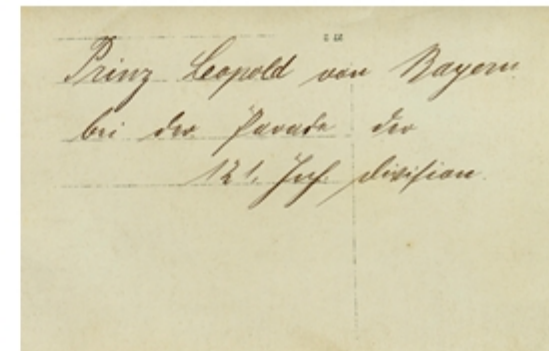 Prinz Leopold von Bayern
bei der Parade der
121. Inf. Division.